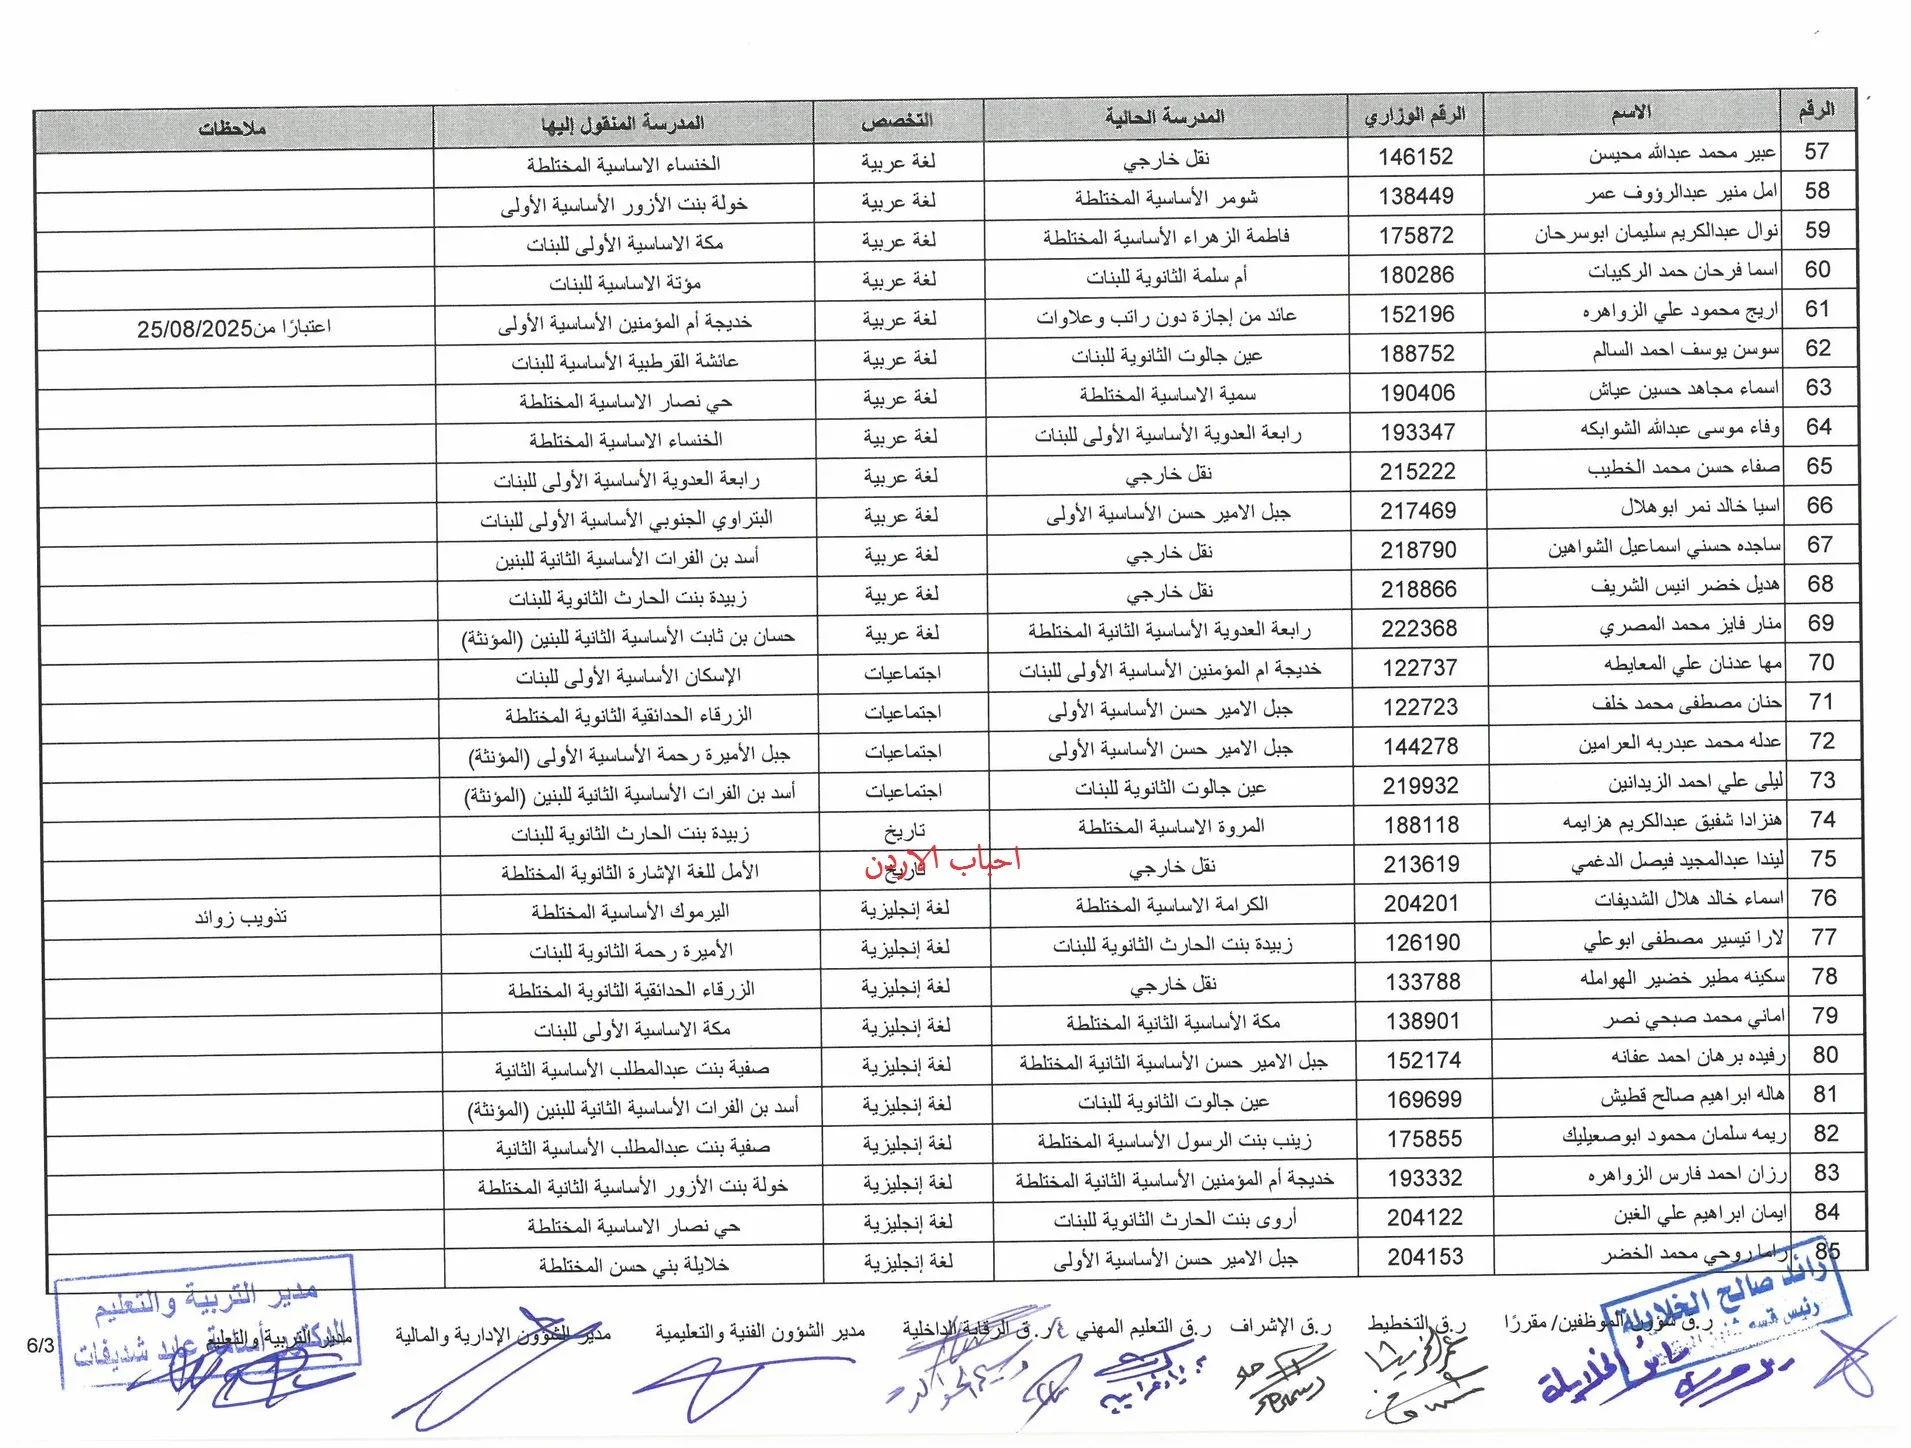 الرقم الاسم الرقم الوزاري المدرسة الحالية التخصص المدرسة المنقول إليها ملاحظات
57 عبير محمد عبدالله محيسن 146152 نقل خارجي لغة عربية الخنساء الاساسية المختلطة
58 امل منير عبدالرؤوف عمر 138449 شومر الأساسية المختلطة لغة عربية خولة بنت الأزور الأساسية الأولى
59 نوال عبدالكريم سليمان ابوسرحان 175872 فاطمة الزهراء الأساسية المختلطة لغة عربية مكة الاساسية الأولى للبنات
60 اسما فرحان حمد الركيبات 180286 أم سلمة الثانوية للبنات لغة عربية مؤتة الاساسية للبنات
61 اريج محمود علي الزواهره 152196 عائد من إجازة دون راتب وعلاوات لغة عربية خديجة أم المؤمنين الأساسية الأولى اعتبارًا من25/08/2025
62 سوسن يوسف احمد السالم 188752 عين جالوت الثانوية للبنات لغة عربية عائشة القرطبية الأساسية للبنات
63 اسماء مجاهد حسين عياش 190406 سمية الاساسية المختلطة لغة عربية حي نصار الاساسية المختلطة
64 وفاء موسى عبدالله الشوابكه 193347 رابعة العدوية الأساسية الأولى للبنات لغة عربية الخنساء الاساسية المختلطة
65 صفاء حسن محمد الخطيب 215222 نقل خارجي لغة عربية رابعة العدوية الأساسية الأولى للبنات
66 اسيا خالد نمر ابوهلال 217469 جبل الامير حسن الأساسية الأولى لغة عربية البتراوي الجنوبي الأساسية الأولى للبنات
67 ساجده حسني اسماعيل الشواهين 218790 نقل خارجي لغة عربية أسد بن الفرات الأساسية الثانية للبنين
68 هديل خضر انيس الشريف 218866 نقل خارجي لغة عربية زبيدة بنت الحارث الثانوية للبنات
69 منار فايز محمد المصري 222368 رابعة العدوية الأساسية الثانية المختلطة لغة عربية حسان بن ثابت الأساسية الثانية للبنين (المؤنثة)
70 مها عدنان علي المعايطه 122737 خديجة ام المؤمنين الأساسية الأولى للبنات اجتماعيات الإسكان الأساسية الأولى للبنات
71 حنان مصطفى محمد خلف 122723 جبل الامير حسن الأساسية الأولى اجتماعيات الزرقاء الحدائقية الثانوية المختلطة
72 عدله محمد عبدربه العرامين 144278 جبل الامير حسن الأساسية الأولى اجتماعيات جبل الأميرة رحمة الأساسية الأولى (المؤنثة)
73 ليلى علي احمد الزيدانين 219932 عين جالوت الثانوية للبنات اجتماعيات أسد بن الفرات الأساسية الثانية للبنين (المؤنثة)
74 هنزادا شفيق عبدالكريم هزايمه 188118 المروة الاساسية المختلطة تاريخ زبيدة بنت الحارث الثانوية للبنات
احباب الاردن
75 ليندا عبدالمجيد فيصل الدغمي 213619 نقل خارجي تاريخ الأمل للغة الإشارة الثانوية المختلطة
76 اسماء خالد هلال الشديفات 204201 الكرامة الاساسية المختلطة لغة إنجليزية اليرموك الأساسية المختلطة تذويب زوائد
77 لارا تيسير مصطفى ابوعلي 126190 زبيدة بنت الحارث الثانوية للبنات لغة إنجليزية الأميرة رحمة الثانوية للبنات
78 سكينه مطير خضير الهوامله 133788 نقل خارجي لغة إنجليزية الزرقاء الحدائقية الثانوية المختلطة
79 اماني محمد صبحي نصر 138901 مكة الأساسية الثانية المختلطة لغة إنجليزية مكة الاساسية الأولى للبنات
80 رفيده برهان احمد عفانه 152174 جبل الامير حسن الأساسية الثانية المختلطة لغة إنجليزية صفية بنت عبدالمطلب الأساسية الثانية
81 هاله ابراهيم صالح قطيش 169699 عين جالوت الثانوية للبنات لغة إنجليزية أسد بن الفرات الأساسية الثانية للبنين (المؤنثة)
82 ريمه سلمان محمود ابوصعيليك 175855 زينب بنت الرسول الأساسية المختلطة لغة إنجليزية صفية بنت عبدالمطلب الأساسية الثانية
83 رزان احمد فارس الزواهره 193332 خديجة أم المؤمنين الأساسية الثانية المختلطة لغة إنجليزية خولة بنت الأزور الأساسية الثانية المختلطة
84 ايمان ابراهيم علي الغبن 204122 أروى بنت الحارث الثانوية للبنات لغة إنجليزية حي نصار الاساسية المختلطة
85 راما روحي محمد الخضر 204153 جبل الامير حسن الأساسية الأولى لغة إنجليزية خلايلة بني حسن المختلطة
رائد صالح الخلايلة
رئيس قسم
مدير التربية والتعليم
ر.ق شؤون الموظفين/ مقررًا ر.ق التخطيط ر.ق الإشراف ر.ق التعليم المهني ر.ق الرقابة الداخلية مدير الشؤون الفنية والتعليمية مدير الشؤون الإدارية والمالية مدير التربية والتعليم 6/3
شديفات